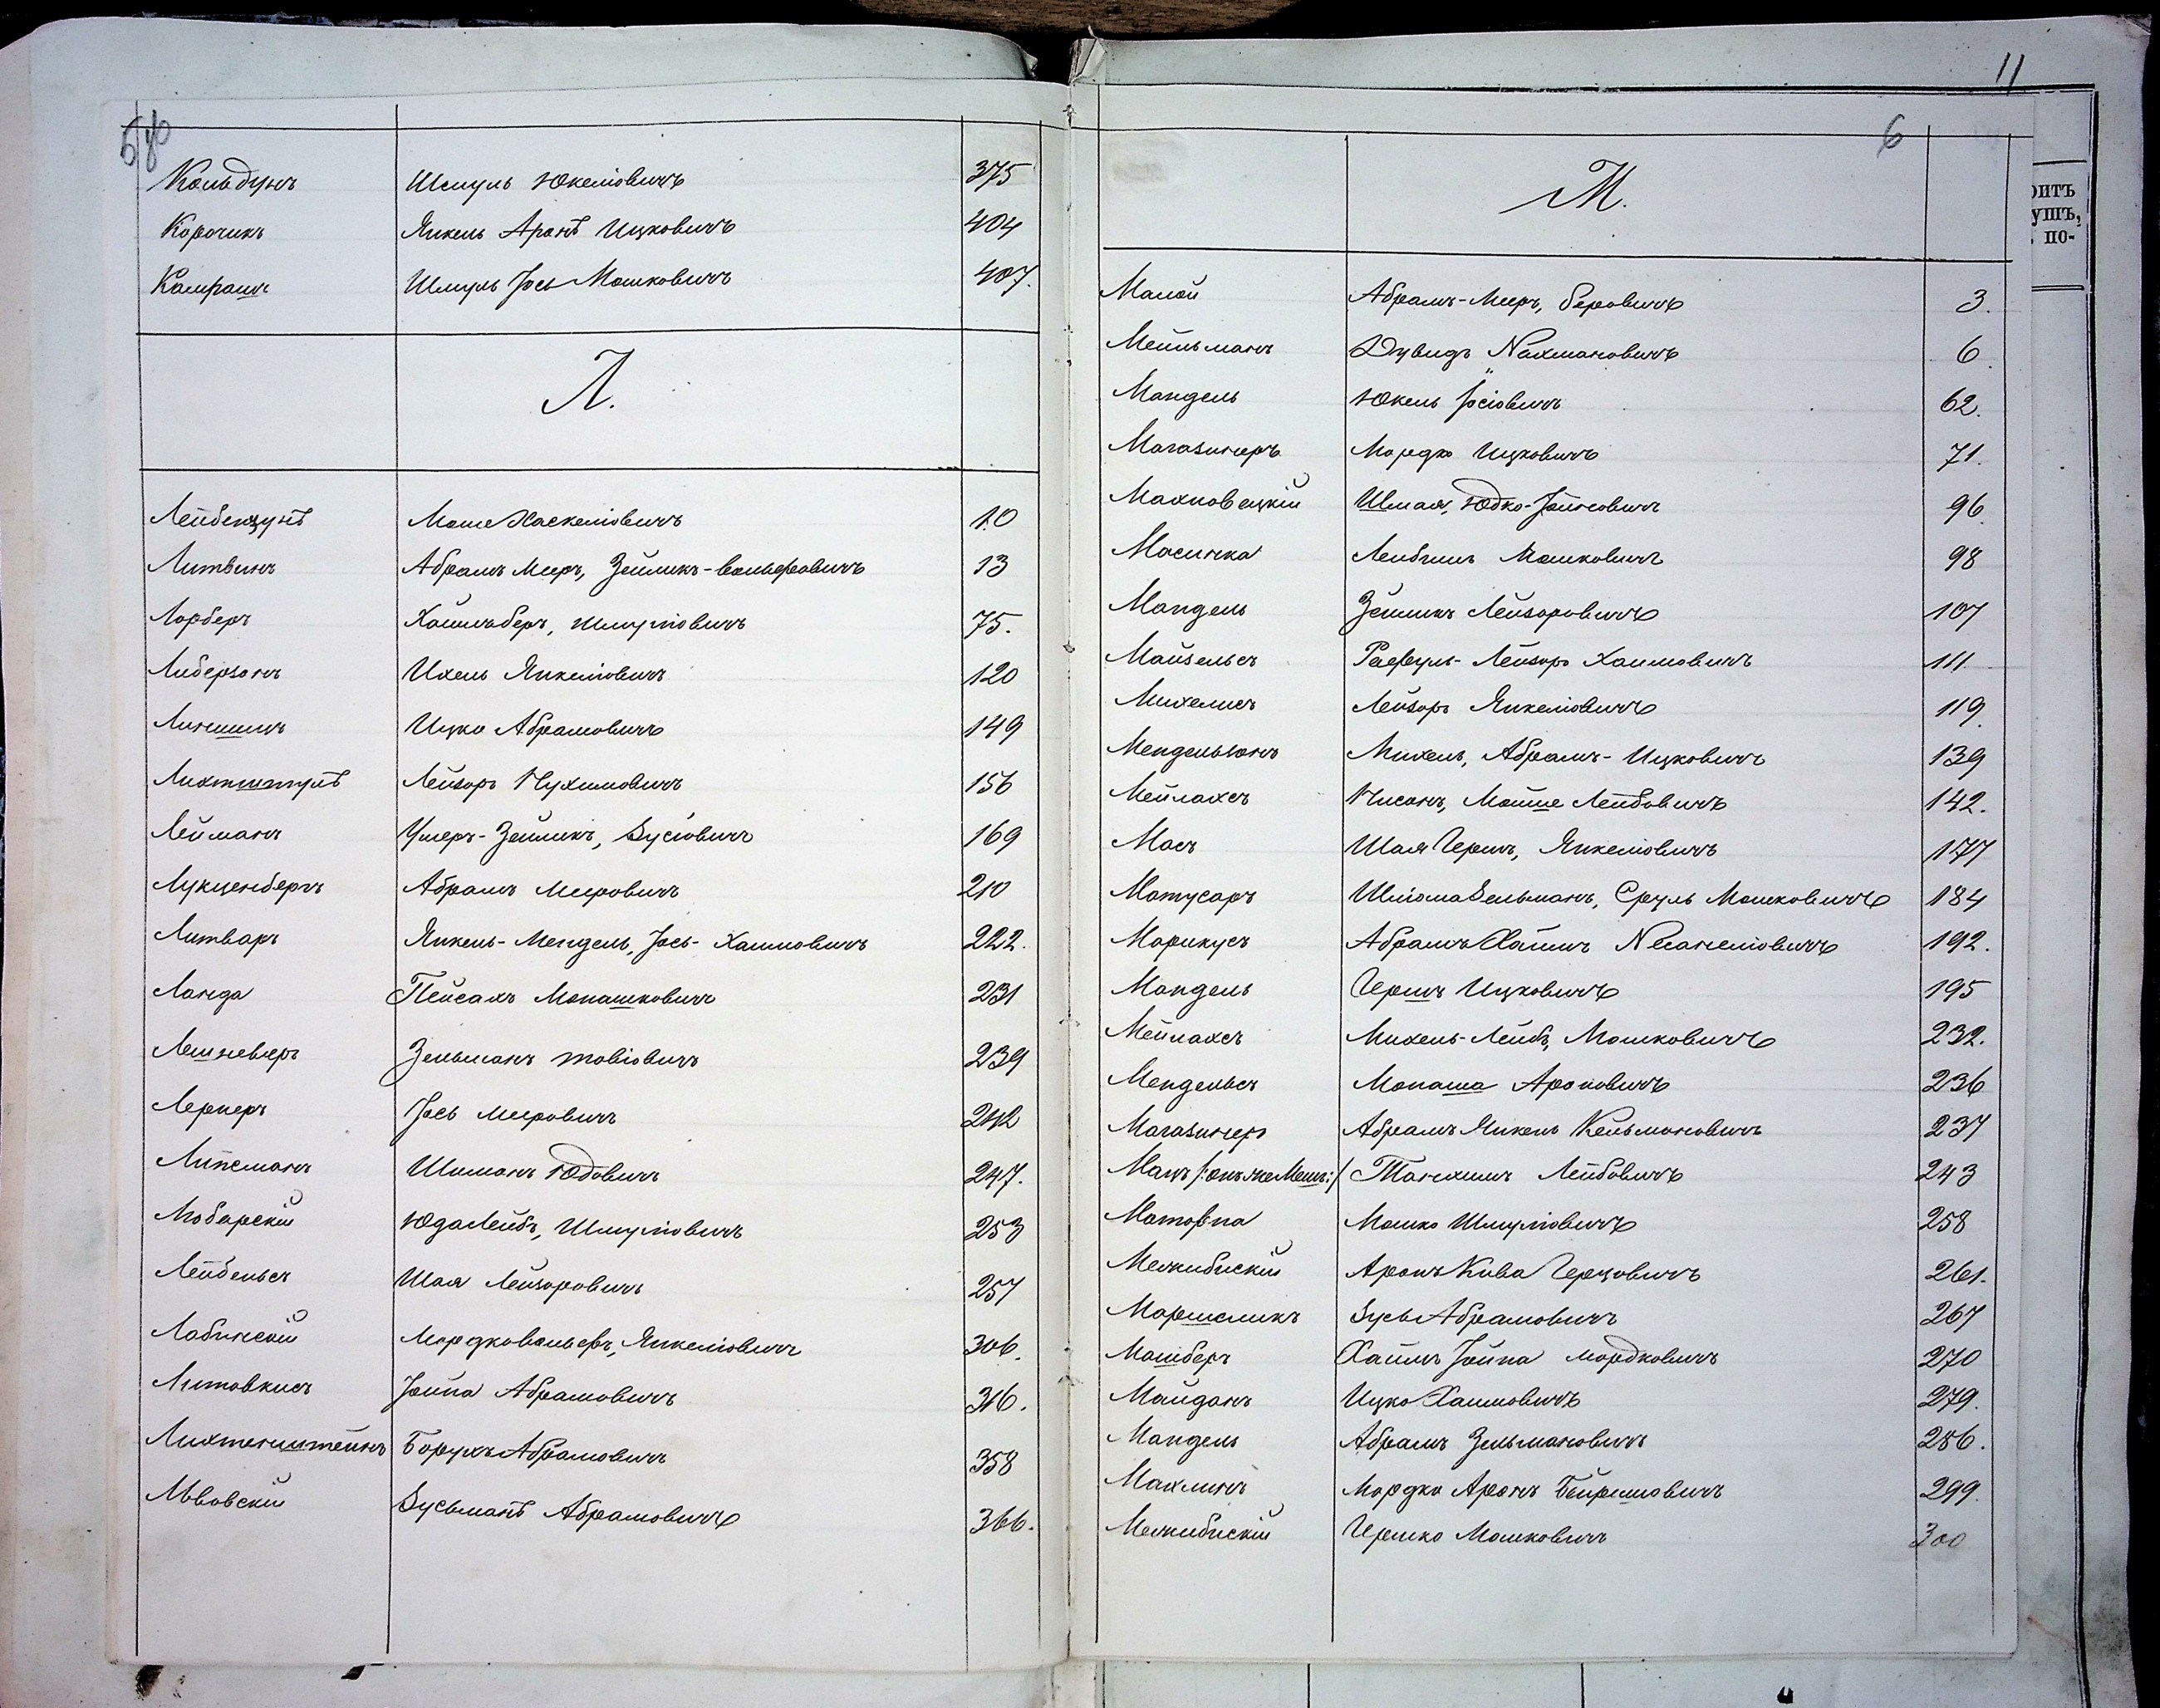 Кольдунъ Шмуль Юкеліовичъ 375
Корочикъ Янкель Аронъ Ицковичъ 404
Шмуль Іось Мошковичъ 407.
Л.
Лейбенцунъ Моше Хаскеліовичъ 10
Литвинъ Абрамъ Мееръ, Зейликъ-Вольфовичъ 13
Лорберъ Хаимъ Беръ, Шмуліовичъ 75.
Либерзонъ Ихель Янкеліовичъ 120
Линшицъ Ицко Абрамовичъ 149
Лихтштулъ Лейзоръ Нухимовичъ 156
Лейманъ Ушеръ-Зейликъ, Зусіовичъ 169
Лукценбергъ Абрамъ Мееровичъ 210
Литваръ Янкель-Мендель, Іось-Хаимовичъ 222.
Ланда Пейсахъ Монашковичъ 231
Лешневеръ Зельманъ Товіовичъ 239
Лернеръ Іось Мееровичъ 242
Липсманъ Шимонъ Юдовичъ 247.
Любарскій Юда Лейбъ, Шмуліовичъ 253
Лейбельсъ Шая Лейзоровичъ 257
Лабинскій Мордко Вольфъ, Янкеліовичъ 306.
Литовкисъ Іойна Абрамовичъ 316.
Лихтенштейнъ Борухъ Абрамовичъ 358
Львовскій Зусьманъ Абрамовичъ 366.
11
6
М.
Малой Абрамъ-Мееръ, Беровичъ 3.
Мейльманъ Дувидъ Нахмановичъ 6
Мандель Юкель Іосіовичъ 62.
Магазинеръ Мордко Ицковичъ 71.
Махновецкій Шмая, Юдко-Іойновичъ 96
Масичка Лейбишъ Мошковичъ 98
Мандель Зейликъ Лейзоровичъ 107
Майзельсъ Рафуль-Лейзоръ Хаимовичъ 111
Михелисъ Лейзоръ Янкеліовичъ 119
Мендельзонъ Михель, Абрамъ-Ицковичъ 139
Мейлахсъ Нисонъ, Мойше Лейбовичъ 142.
Мась Шая Гершъ, Янкеліовичъ 177
Матусаръ Шлёма Зельманъ, Сруль Мошковичъ 184
Марикусъ Абрамъ Хаимъ 192.
Мандель Гершъ Ицковичъ 195
Мейлахсъ Михель-Лейбъ, Мошковичъ 232.
Мендельсъ Монаша Ароновичъ 236
Магазинеръ Абрамъ Янкель Кельмановичъ 237
Мацъ /:онъ же Мешъ:/ Танхимъ Лейбовичъ 243
Матовна Мошко Шмуліовичъ 258
Межибискій Аронъ Кива Герцовичъ 261.
Маршеликъ Зусь Абрамовичъ 267
Машберъ Хаимъ Іойна Мордковичъ 270
Майданъ Ицко Хаимовичъ 279.
Мандель Абрамъ Зельмановичъ 286.
Махлинъ Мордко Аронъ Бейришовичъ 299.
Межибискій Гершко Мошковичъ 300
оитъ
ушъ,
по-